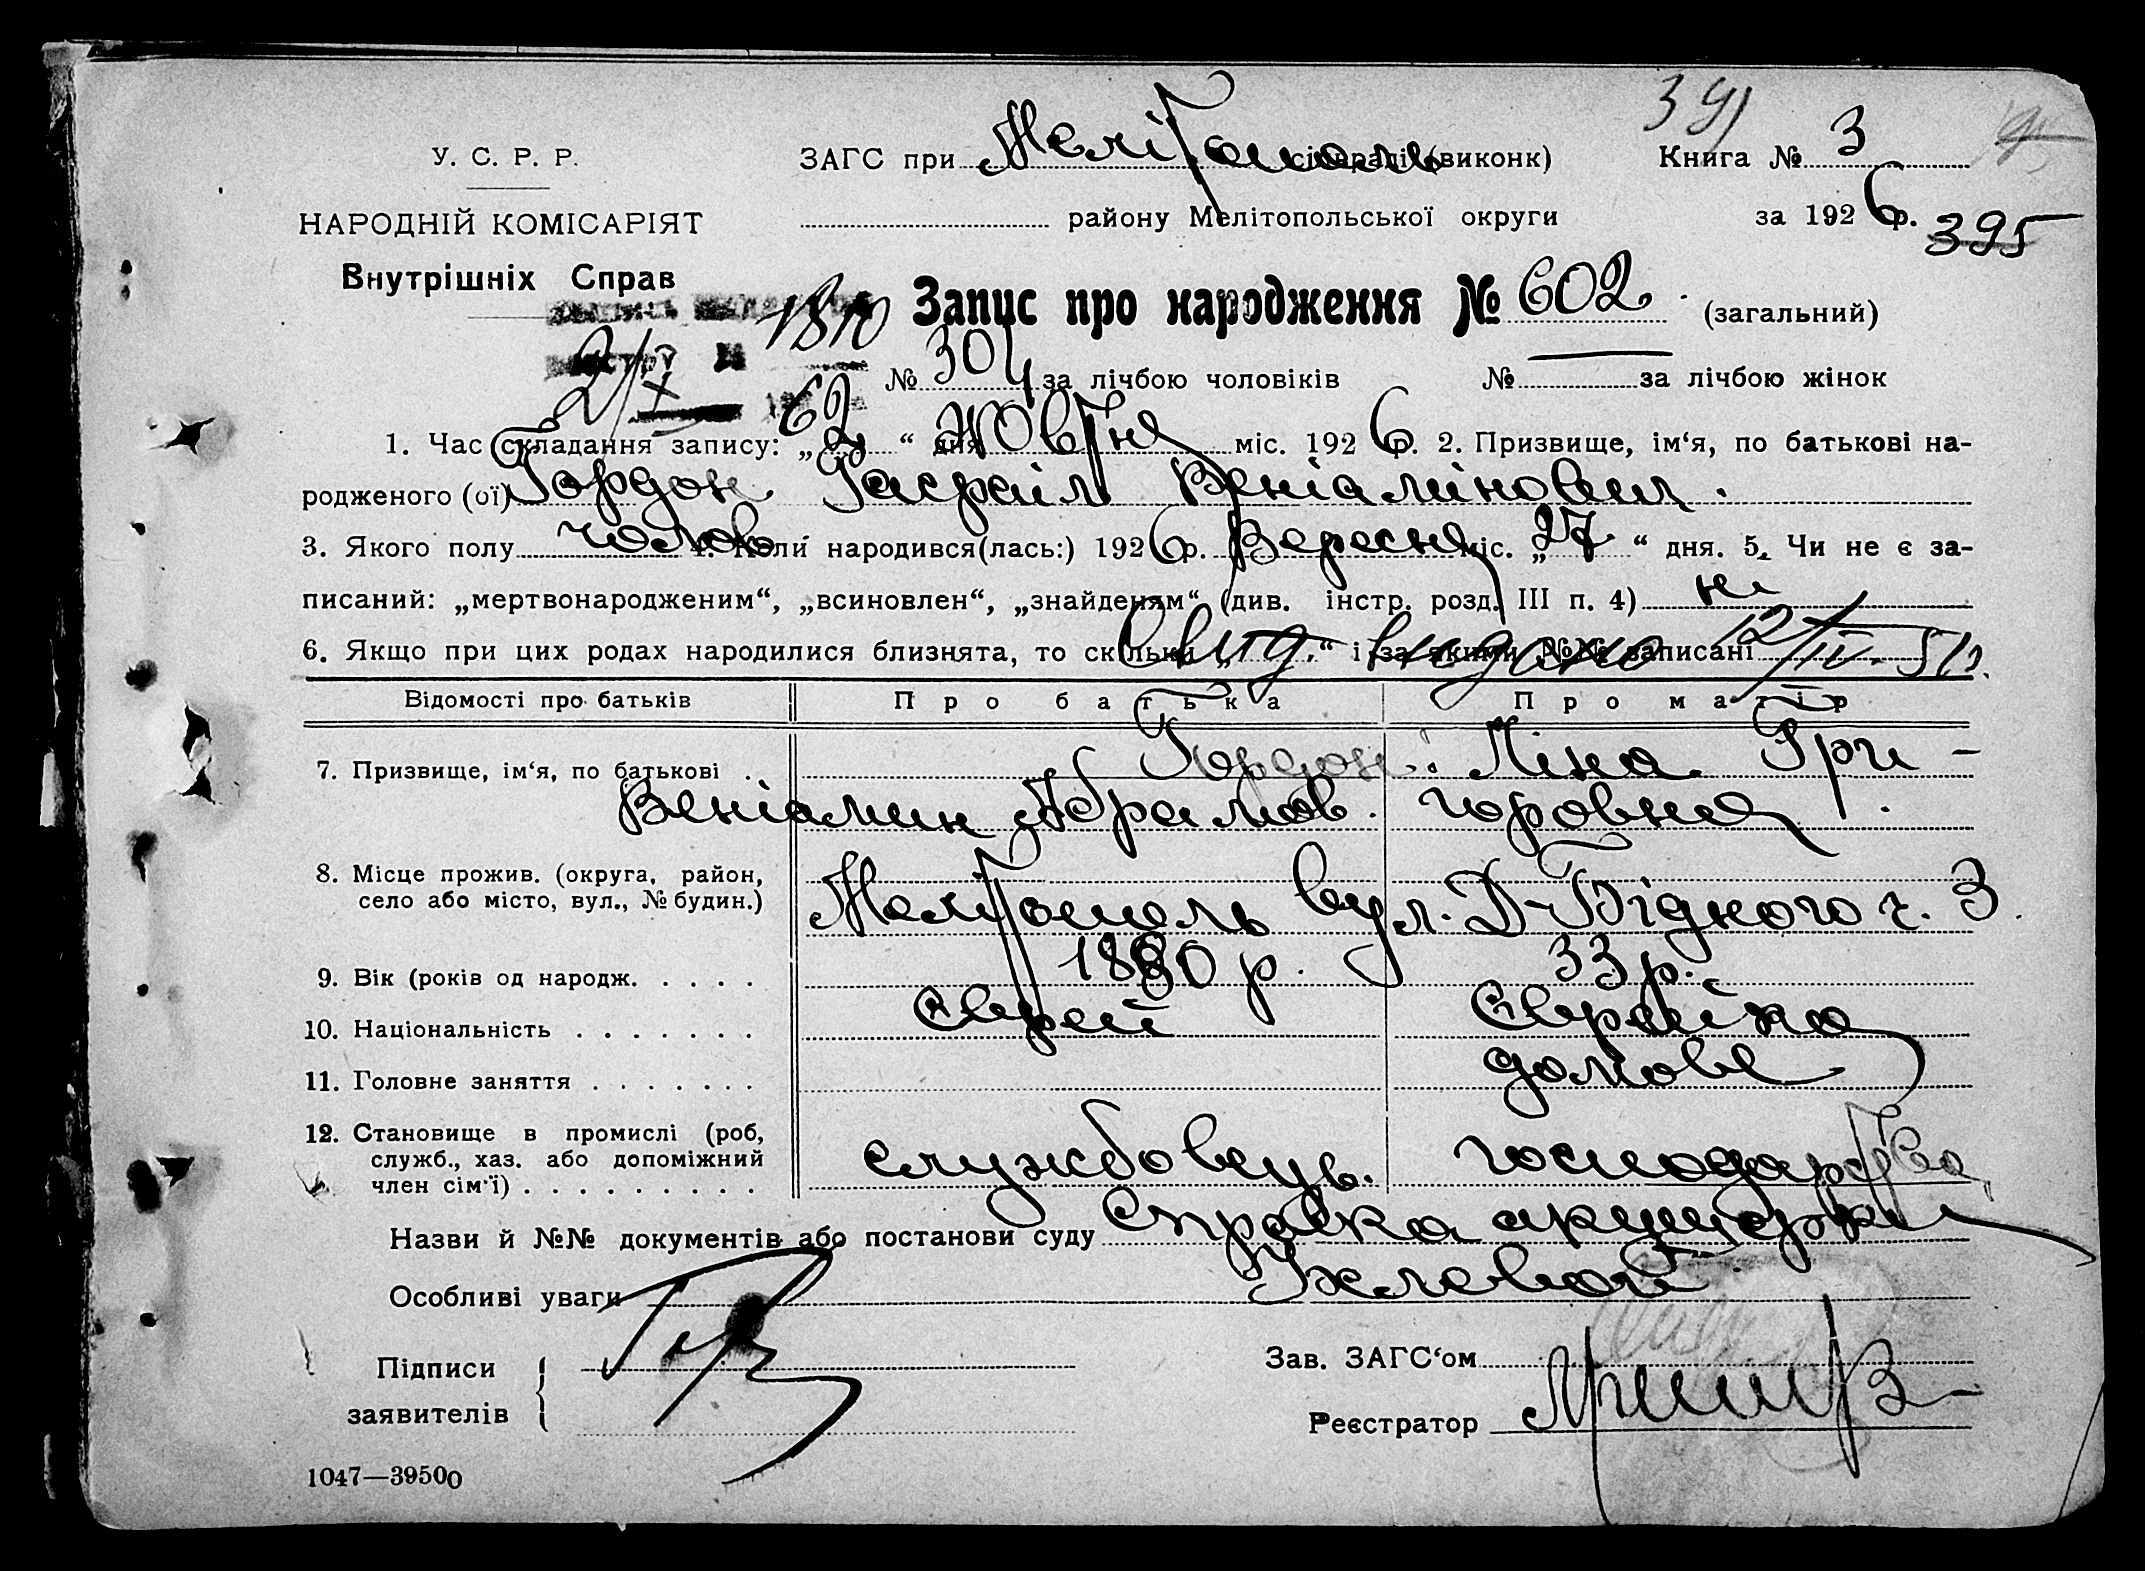 391
У. С. Р. Р.
ЗАГС при Мелітополь сільраді (виконк)
Книга № 3
НАРОДНІЙ КОМІСАРІЯТ
району Мелітопольської округи
за 1926 р.
395
Внутрішніх Справ
Запис про народження № 602 (загальний)
1810
2/X 62
№ 304 за лічбою чоловіків № — за лічбою жінок
1. Час складання запису: „2“ дня Жовтня міс. 1926 р. 2. Призвище, ім‘я, по батькові на-
родженого (ої) Гордон Веніамінович.
3. Якого полу чолов. 4. Коли народився(лась:) 1926 р. Вересня міс. „27“ дня. 5. Чи не є за-
писаний: „мертвонародженим“, „всиновлен“, „знайденям“ (див. інстр. розд. III п. 4) ні
6. Якщо при цих родах народилися близнята, то скільки „ “ і за якими №№ записані
видано 12/IV.
Відомості про батьків Про батька Про матір
7. Призвище, ім‘я, по батькові . Гордон. Ліна Гри-
Веніамин Абрамов. горовна.
8. Місце прожив. (округа, район,
село або місто, вул., № будин.)
Мелітополь вул. Д-Бідного ч. 3.
9. Вік (років од народж. . . . . 1880 р. 33 р.
10. Національність . . . . . . . Єврей Єврейка
11. Головне заняття . . . . . . . домове
12. Становище в промислі (роб,
служб., хаз. або допоміжний
член сім‘ї) . . . . . . . . .
службовець. господарство
Назви й №№ документів або постанови суду Справка акушерки
Особливі уваги
Підписи
заявителів
Зав. ЗАГС‘ом
Реєстратор
1047—39500